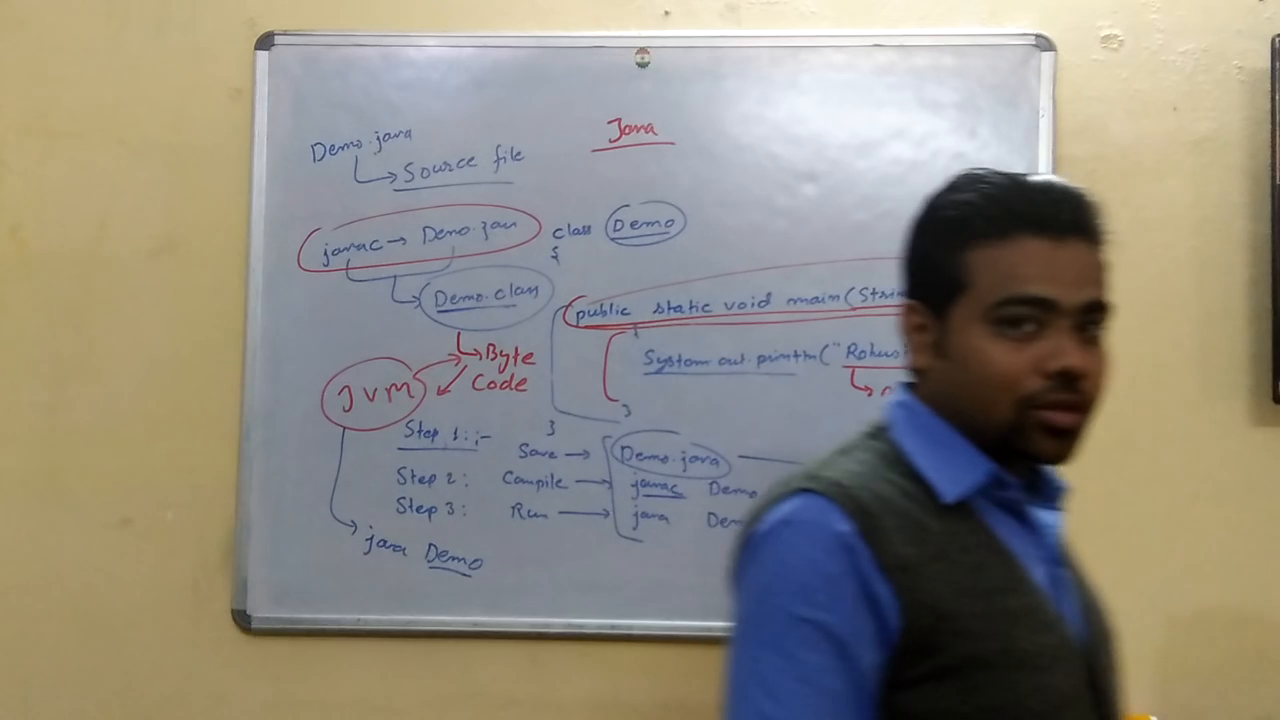 Java
Demo.java
Source file
javac → Demo.java
Demo.class
Byte
Code
JVM
class Demo
{
public static void main(Strin
{
System.out.println("
}
}
Step 1:-
Save → Demo.java
Step 2: Compile → javac Demo
Step 3: Run → java Dem
java Demo